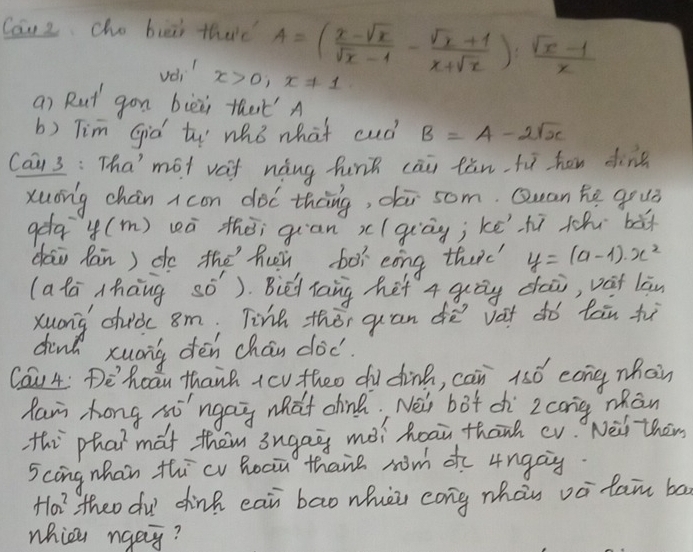 Câu 2. Cho biểu thức A = (\frac{x - √x}{√x - 1} - \frac{√x + 1}{x + √x}) : \frac{√x - 1}{x}
với x > 0, x ≠ 1.
a) Rút gọn biểu thức A
b) Tìm Giá trị nhỏ nhất của B = A - 2√x
Câu 3: Thả một vật nặng hình cầu lăn từ trên đỉnh
xuống chân 1 con dốc thẳng, dài 50m. Quan hệ giữa
qđg y(m) và thời gian x (giây; kể từ khi bắt
đầu lăn) đc thể hiện bởi công thức y = (a-1).x²
(a là 1 hằng số). Biết rằng hết 4 giây đầu, vật lăn
xuống được 8m. Tính thời gian để vật đó lăn từ
đỉnh xuống đến chân dốc.
Câu 4: Để hoàn thành 1 cv theo dự định, cần 1 số công nhân
làm trong số ngày nhất định. Nếu bớt đi 2 công nhân
thì phải mất thêm 3 ngày mới hoàn thành cv. Nếu thêm
5 công nhân thì cv hoàn thành sớm đc 4 ngày.
Hỏi theo dự định cần bao nhiêu công nhân và làm ba
nhiêu ngày?